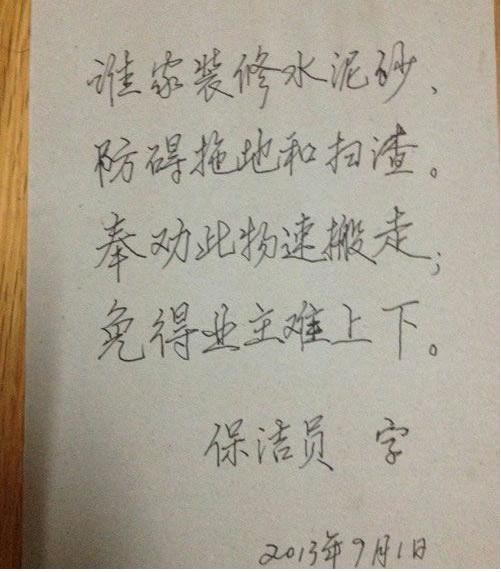 谁家装修水泥砂、
防碍拖地和扫渣。
奉劝此物速搬走;
免得业主难上下。
保洁员 字
2013年9月1日